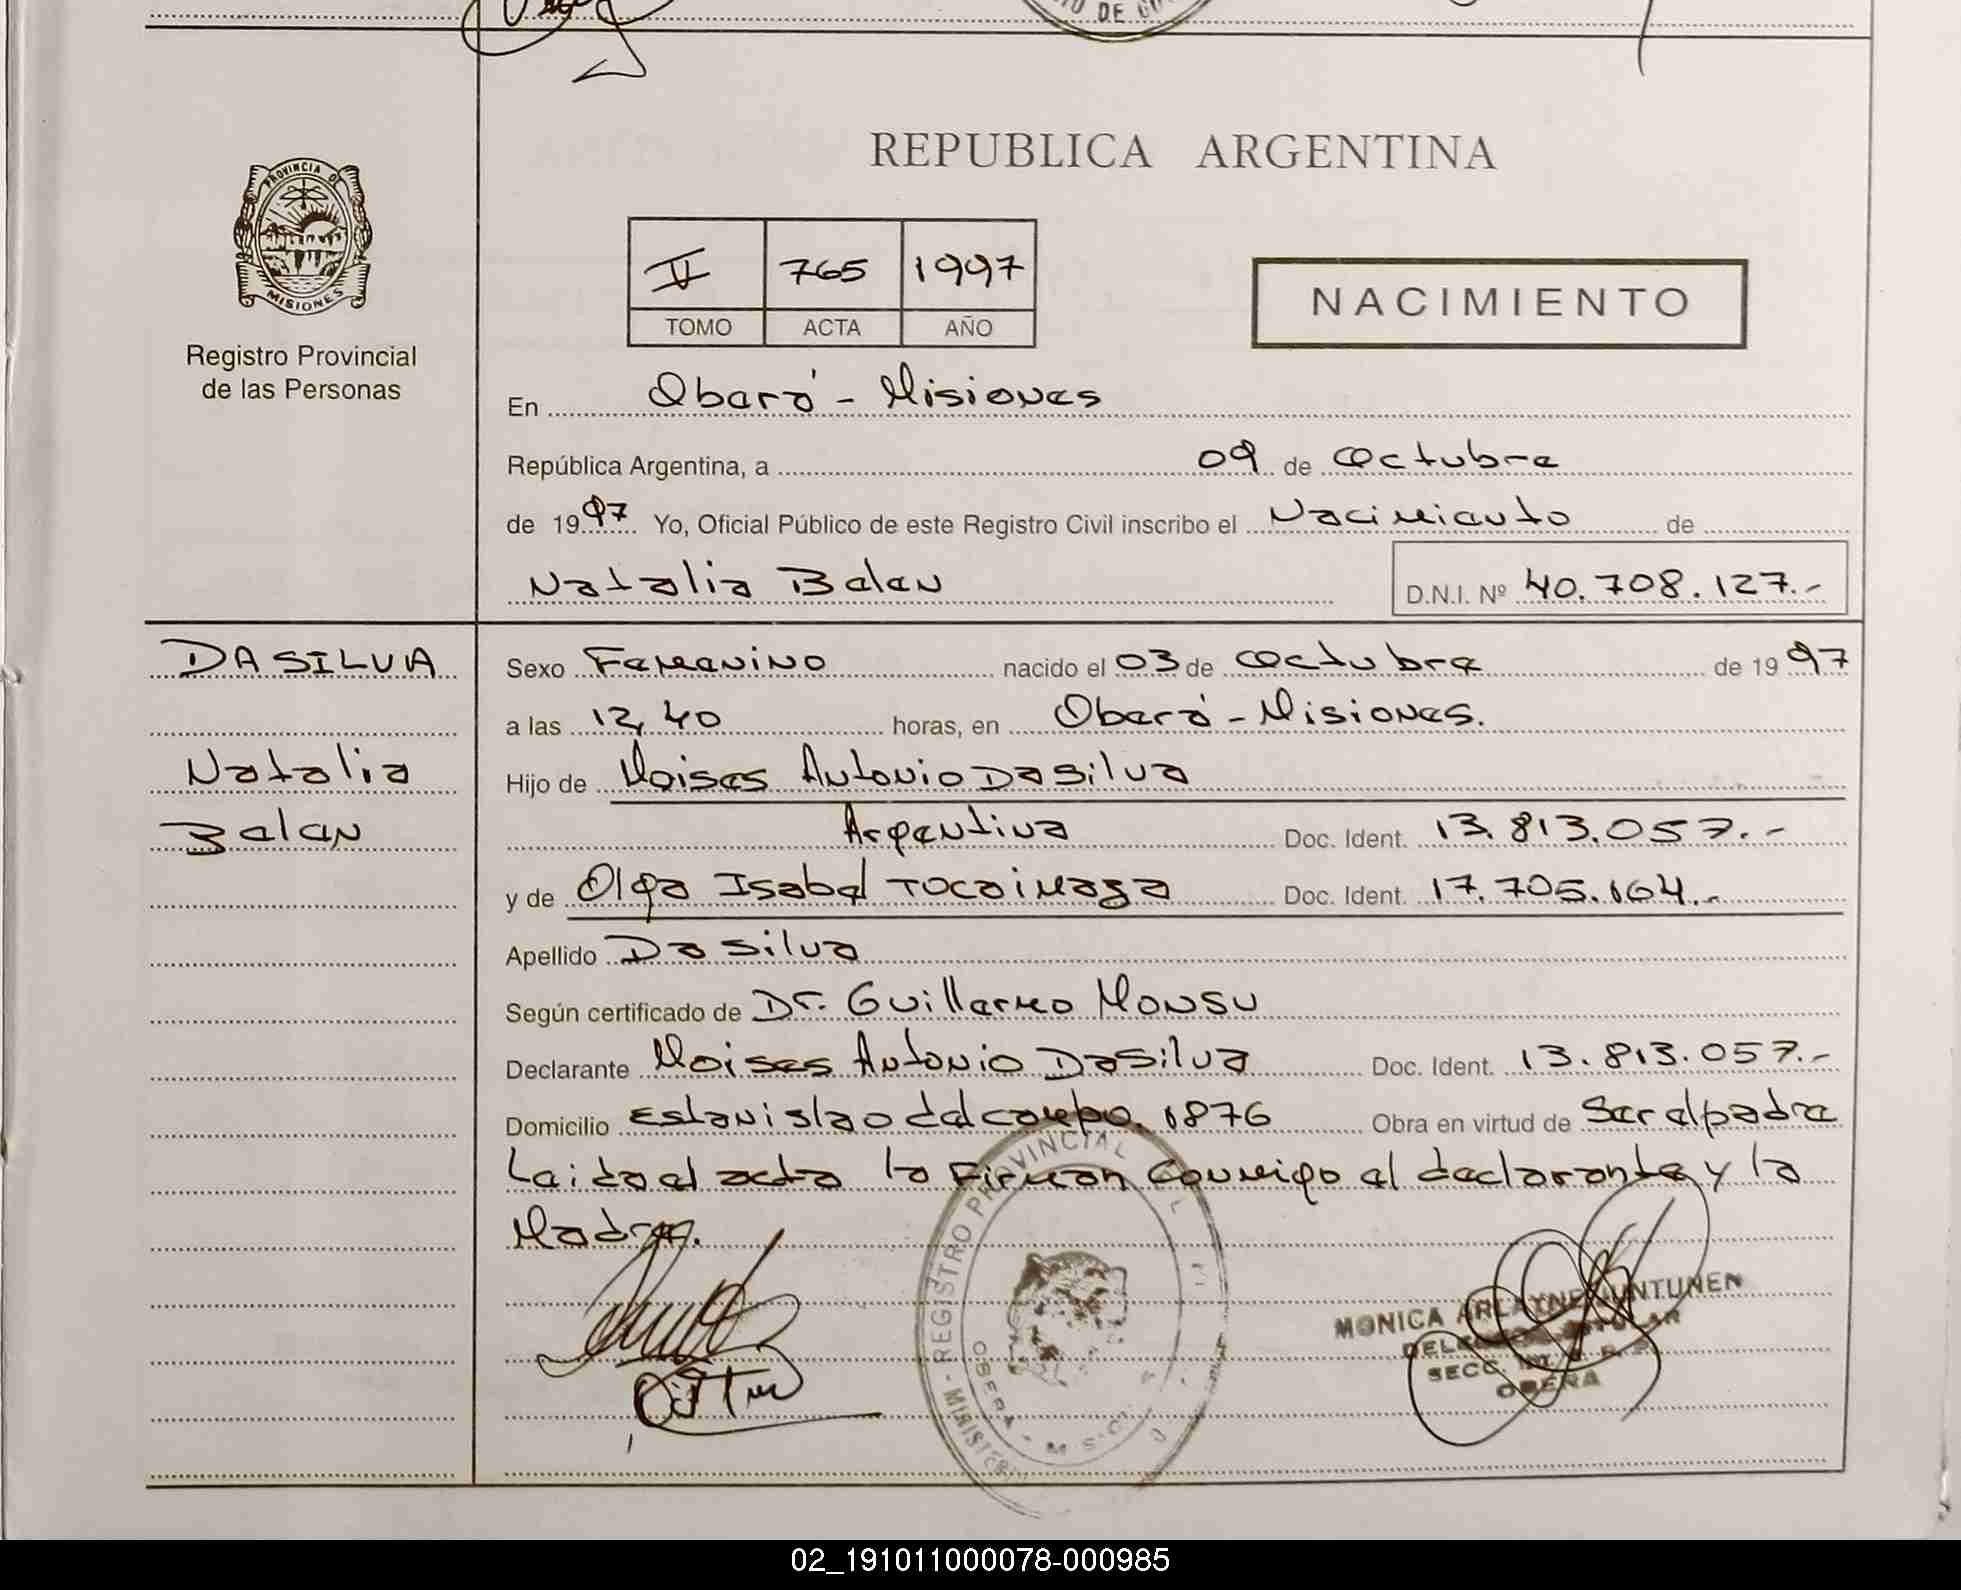 REPUBLICA ARGENTINA
PROVINCIA DE
MISIONES
Registro Provincial
de las Personas
II 765 1997
TOMO ACTA AÑO
NACIMIENTO
En Oberá - Misiones
República Argentina, a 09 de Octubre
de 1997 Yo, Oficial Público de este Registro Civil inscribo el Nacimiento de
Natalia Belen D.N.I. Nº 40.708.127.-
DASILVA
Natalia
Belen
Sexo Femenino nacido el 03 de Octubre de 1997
a las 12,40 horas, en Oberá - Misiones.
Hijo de Moises Antonio Dasilva
Argentina Doc. Ident. 13.813.057.-
y de Olga Isabel Tocaimaza Doc. Ident. 17.705.164.-
Apellido Dasilva
Según certificado de Dr. Guillermo Monsu
Declarante Moises Antonio Dasilva Doc. Ident. 13.813.057.-
Domicilio Estanislao del campo. 1876 Obra en virtud de Ser el padre
Leida el acta la Firman Conmigo el declarante y la
Madre.
REGISTRO PROVINCIAL
OBERA
MINISTERIO
MONICA
OBERA
02_191011000078-000985